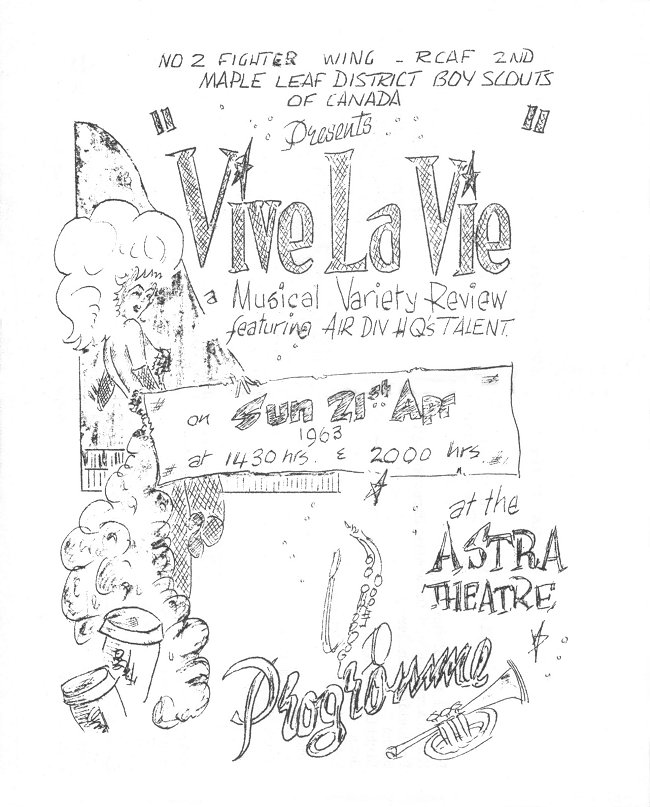 NO 2 FIGHTER WING - RCAF 2ND
MAPLE LEAF DISTRICT BOY SCOUTS
OF CANADA
Presents
"Vive La Vie"
a Musical Variety Review
featuring AIR DIV HQ'S TALENT.
on Sun 21st Apr
1963
at 1430 hrs. & 2000 hrs.
at the
ASTRA
THEATRE
Programme